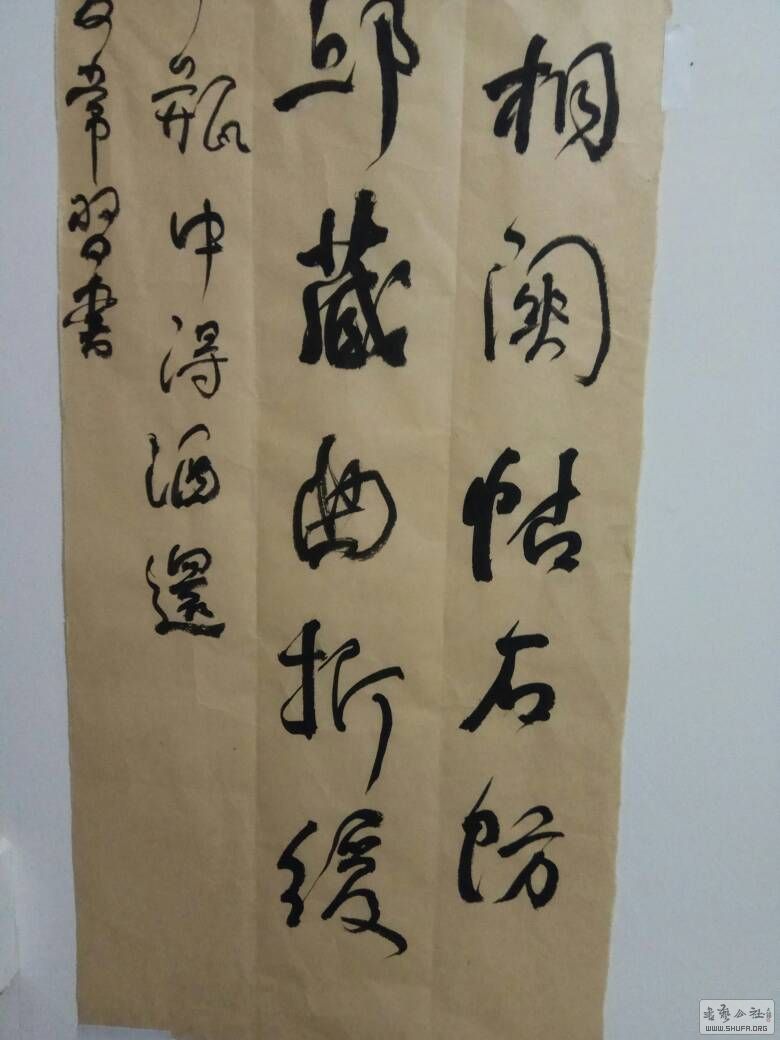 相関帖石防
邱藏曲折緩
瓶中得酒還
常習書
書藝公社
WWW.SHUFA.ORG